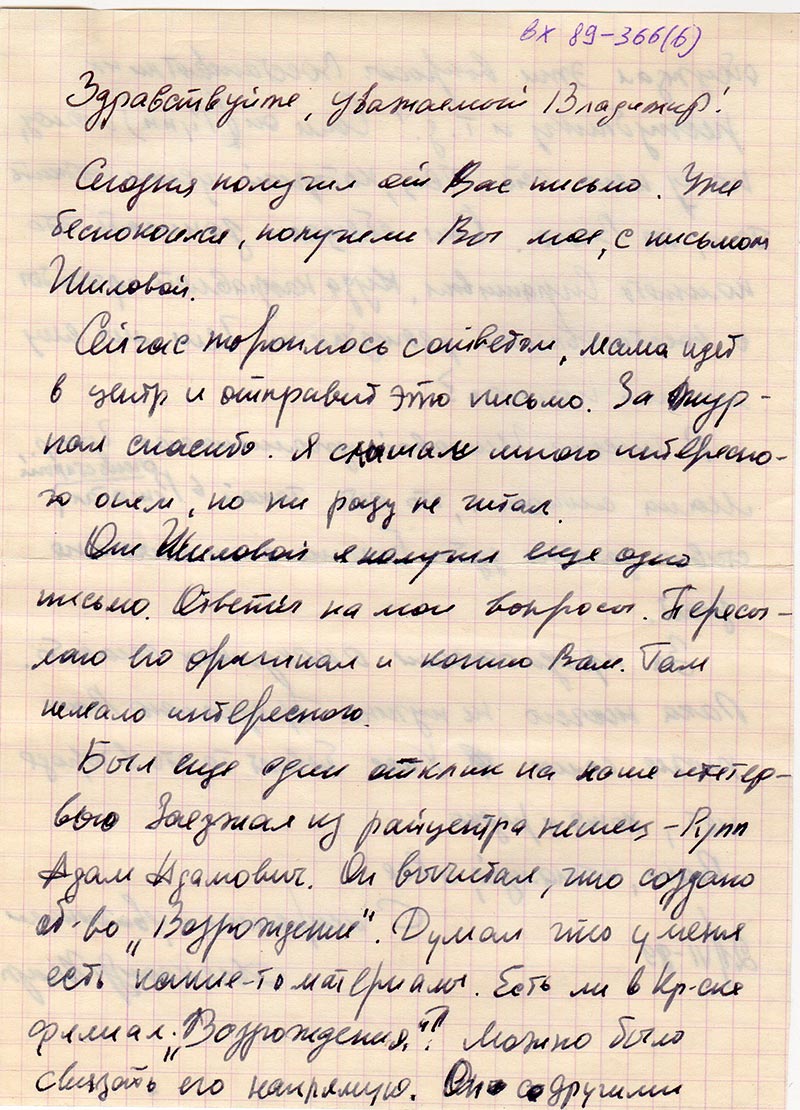 вх 89-366(б)
Здравствуйте, уважаемый Владимир!
Сегодня получил от Вас письмо. Уже
беспокоился, получили Вы мое, с письмом
Шиловой.
Сейчас тороплюсь с ответом, мама идет
в центр и отправит это письмо. За жур-
нал спасибо. Я слышал много интересно-
го о нем, но ни разу не читал.
От Шиловой я получил еще одно
письмо. Ответы на мои вопросы. Пересы-
лаю его оригинал и копию Вам. Там
немало интересного.
Был еще один отклик на наше интер-
вью Заезжал из райцентра немец - Рупп
Адам Адамович. Он вычитал, что создано
об-во „Возрождение". Думал что у меня
есть какие-то материалы. Есть ли в Кр-ске
филиал „Возрождения"? Можно было
связать его напрямую. Он с другими